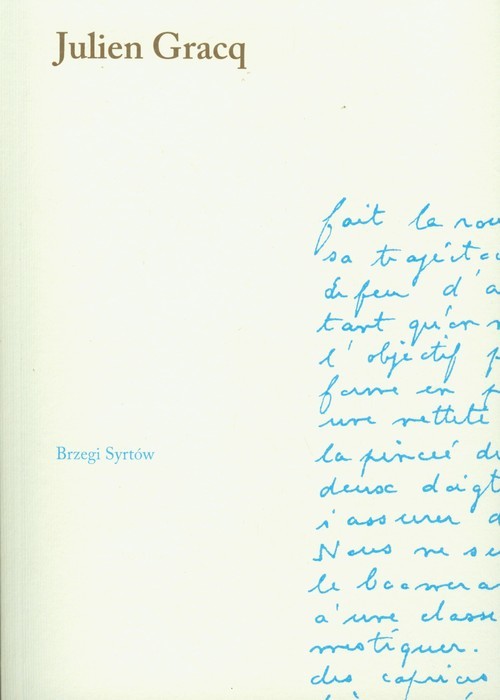 Julien Gracq
fait la rou
sa trajecto
de feu d'a
tant qu'on
l'objectif p
forme en p
une netteté
la pincée de
deux doigt
s'assurer d
Brzegi Syrtów
Nous ne su
le boomera
d'une classe
mestiquer.
des caprices